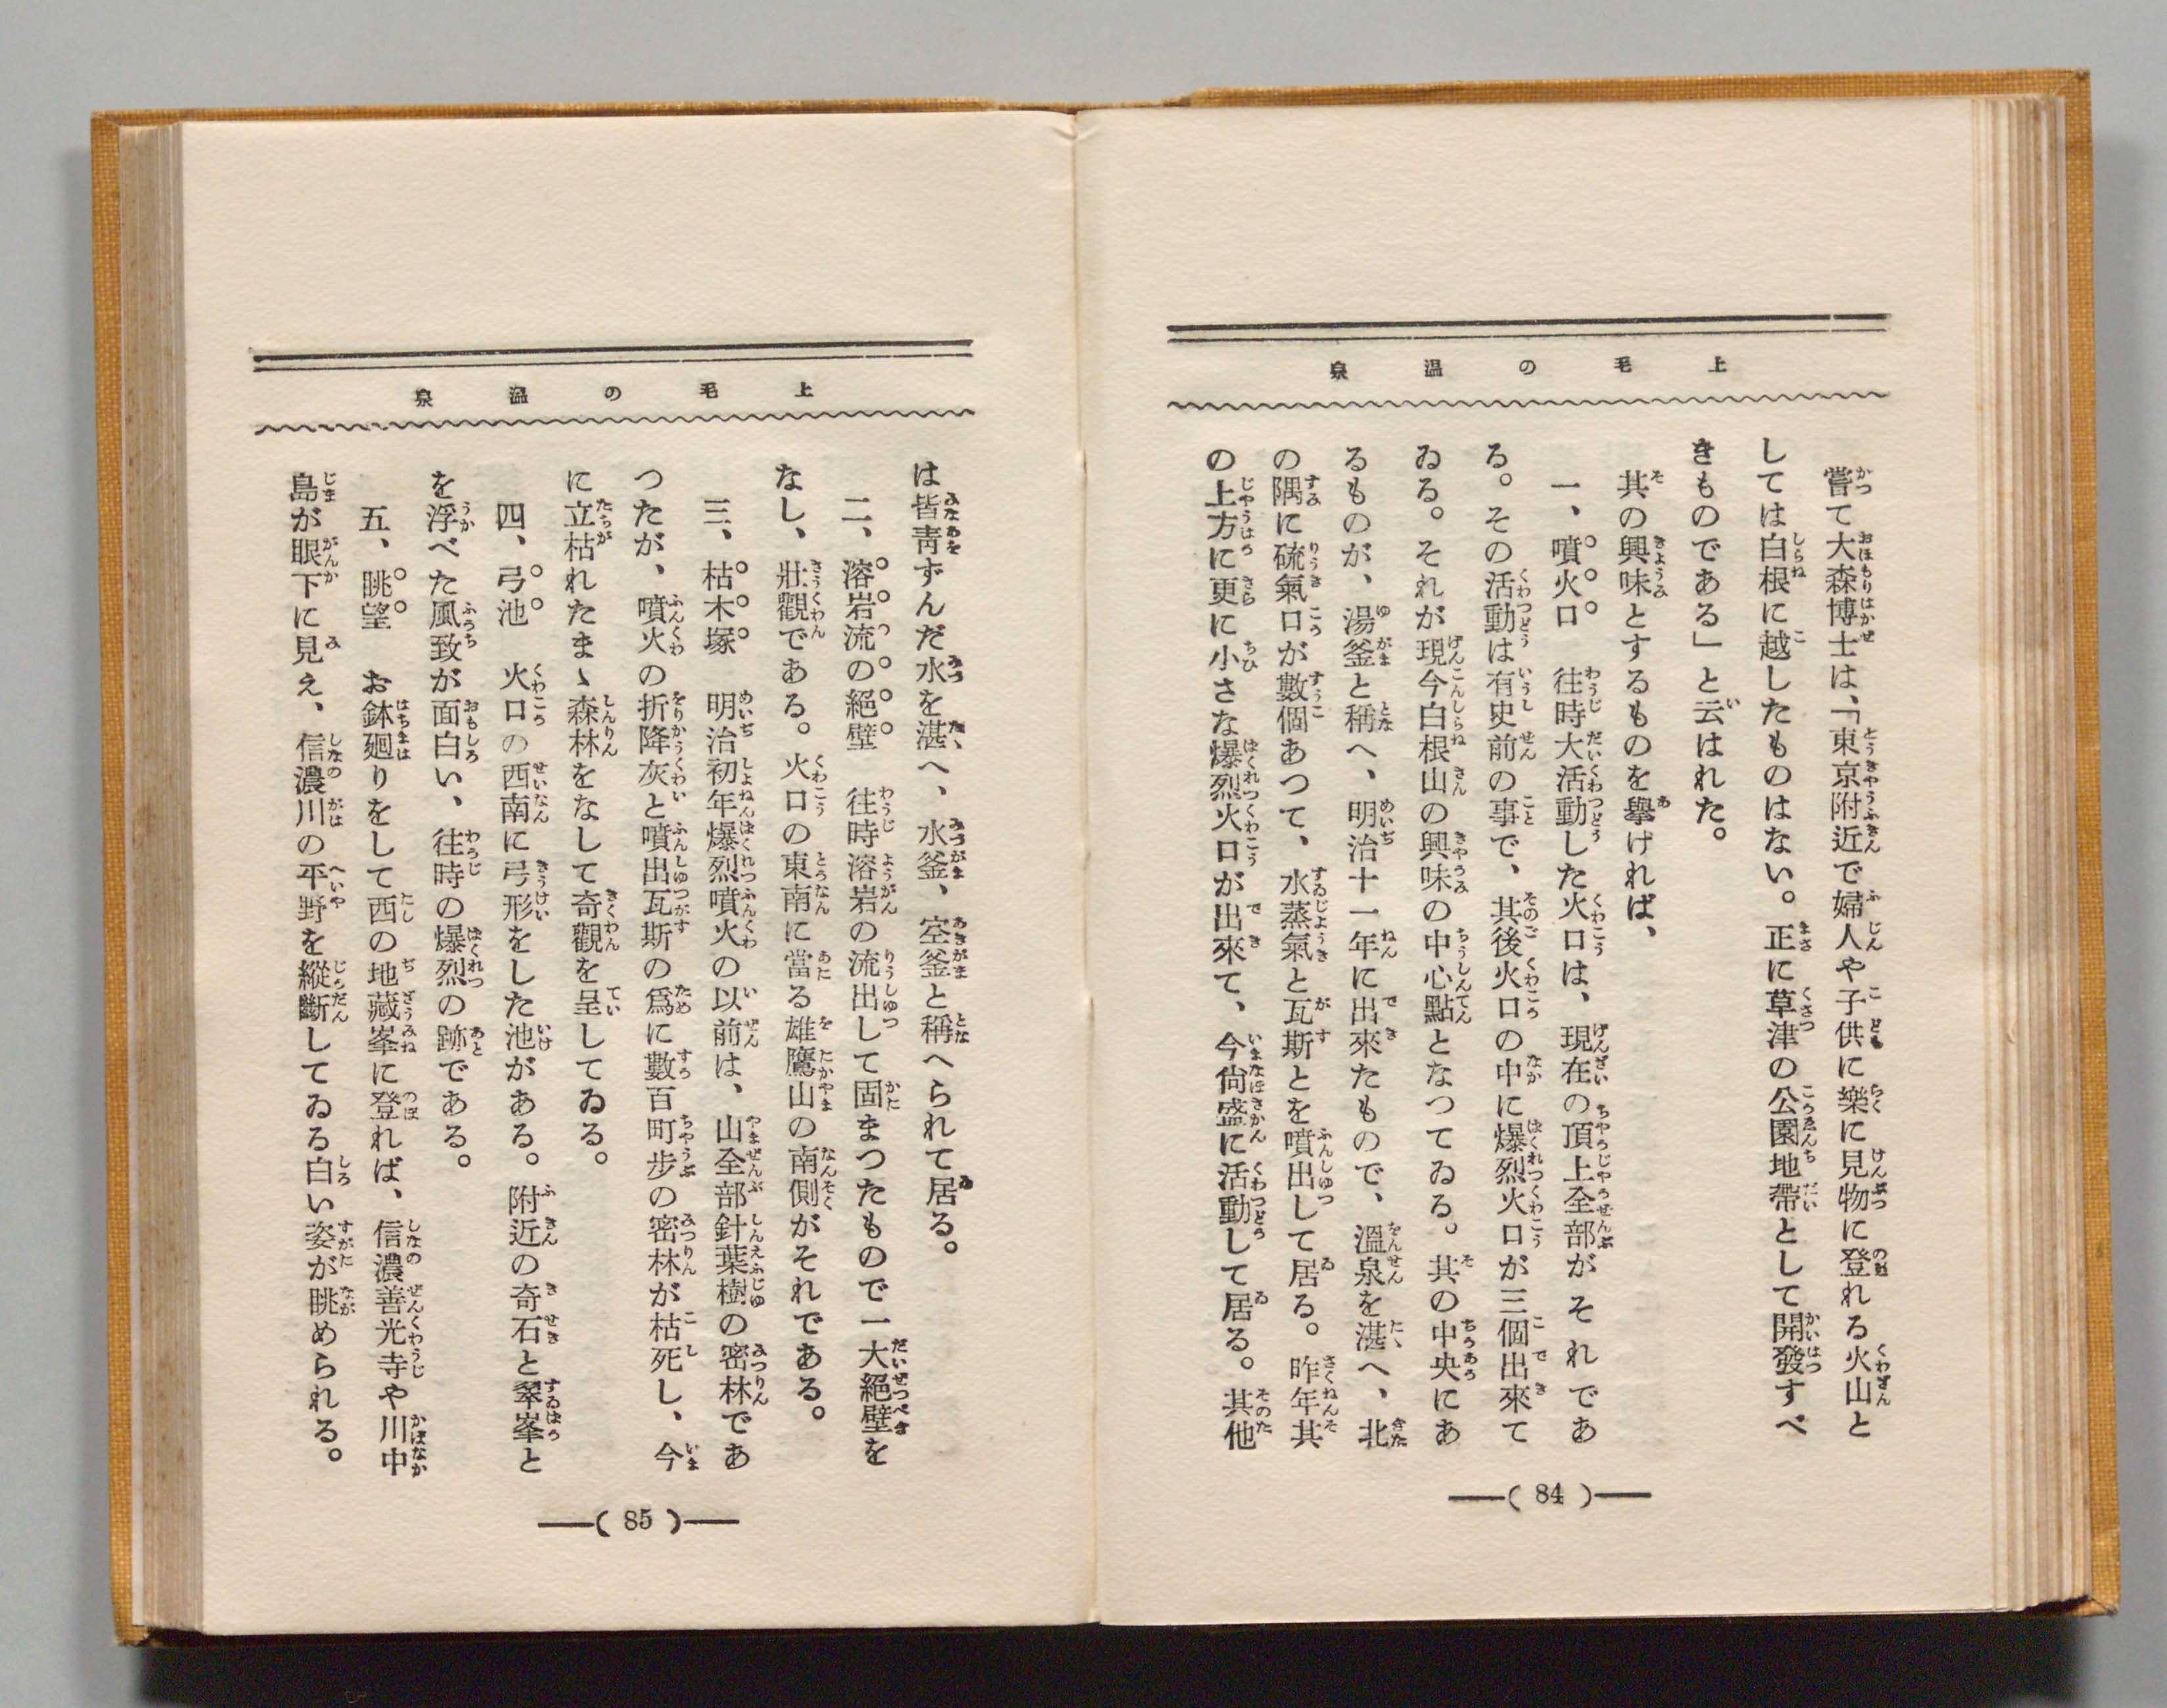 上毛の溫泉
嘗て大森博士は、「東京附近で婦人や子供に樂に見物に登れる火山と
しては白根に越したものはない。正に草津の公園地帶として開發すべ
きものである」と云はれた。
其の興味とするものを擧げれば、
一、噴火口　往時大活動した火口は、現在の頂上全部がそれであ
る。その活動は有史前の事で、其後火口の中に爆烈火口が三個出來て
ゐる。それが現今白根山の興味の中心點となつてゐる。其の中央にあ
るものが、湯釜と稱へ、明治十一年に出來たもので、溫泉を湛へ、北
の隅に硫氣口が數個あつて、水蒸氣と瓦斯とを噴出して居る。昨年其
の上方に更に小さな爆烈火口が出來て、今尙盛に活動して居る。其他
—( 84 )—
上毛の溫泉
は皆靑ずんだ水を湛へ、水釜、空釜と稱へられて居る。
二、溶岩流の絕壁　往時溶岩の流出して固まつたもので一大絕壁を
なし、壯觀である。火口の東南に當る雄鷹山の南側がそれである。
三、枯木塚　明治初年爆烈噴火の以前は、山全部針葉樹の密林であ
つたが、噴火の折降灰と噴出瓦斯の爲に數百町步の密林が枯死し、今
に立枯れたまゝ森林をなして奇觀を呈してゐる。
四、弓池　火口の西南に弓形をした池がある。附近の奇石と翠峯と
を浮べた風致が面白い、往時の爆烈の跡である。
五、眺望　お鉢廻りをして西の地藏峯に登れば、信濃善光寺や川中
島が眼下に見え、信濃川の平野を縱斷してゐる白い姿が眺められる。
—( 85 )—